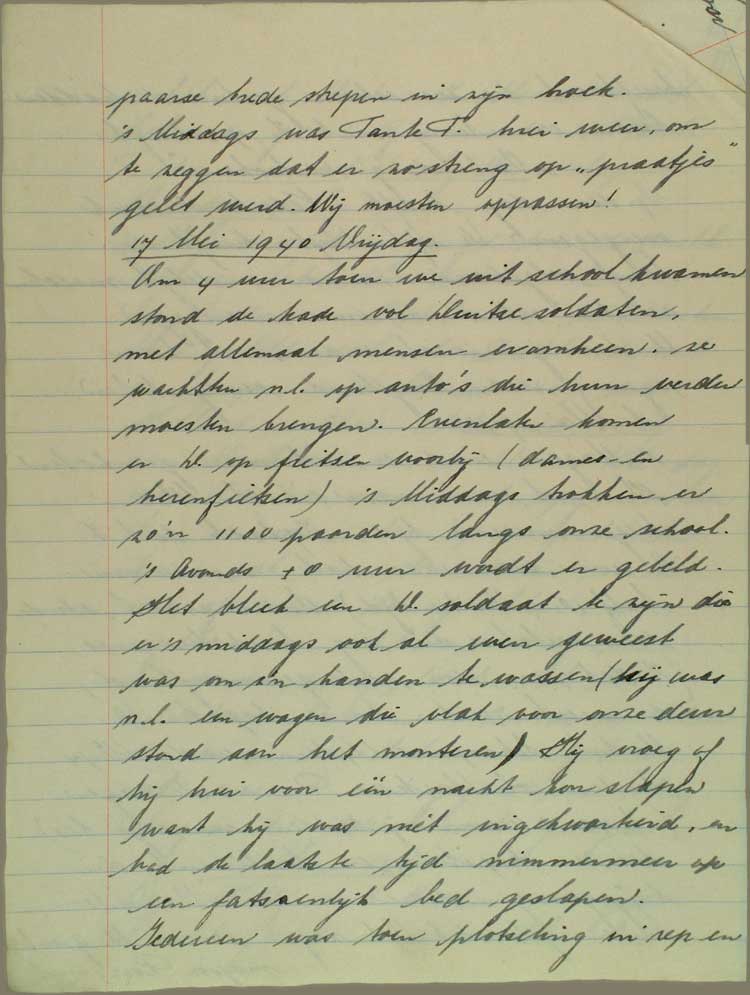 paarse brede strepen in zijn broek.
's Middags was Tante T. hier weer, om
te zeggen dat er zo streng op „praatjes"
gelet werd. Wij moesten oppassen!
17 Mei 1940 Vrijdag.
Om 4 uur toen we uit school kwamen
stond de kade vol Duitse soldaten,
met allemaal mensen eromheen. ze
wachtten n.l. op auto's die hun verder
moesten brengen. Evenlater komen
er D. op fietsen voorbij (dames- en
herenfietsen) 's Middags trokken er
zo'n 1100 paarden langs onze school.
's Avonds ± 8 uur wordt er gebeld.
Het bleek een D. soldaat te zijn die
er 's middags ook al even geweest
was om z'n handen te wassen (hij was
n.l. een wagen die vlak voor onze deur
stond aan het monteren) Hij vroeg of
hij hier voor één nacht kon slapen
want hij was niet ingekwartierd, en
had de laatste tijd nimmermeer op
een fatsoenlijk bed geslapen.
Iedereen was toen plotseling in rep en